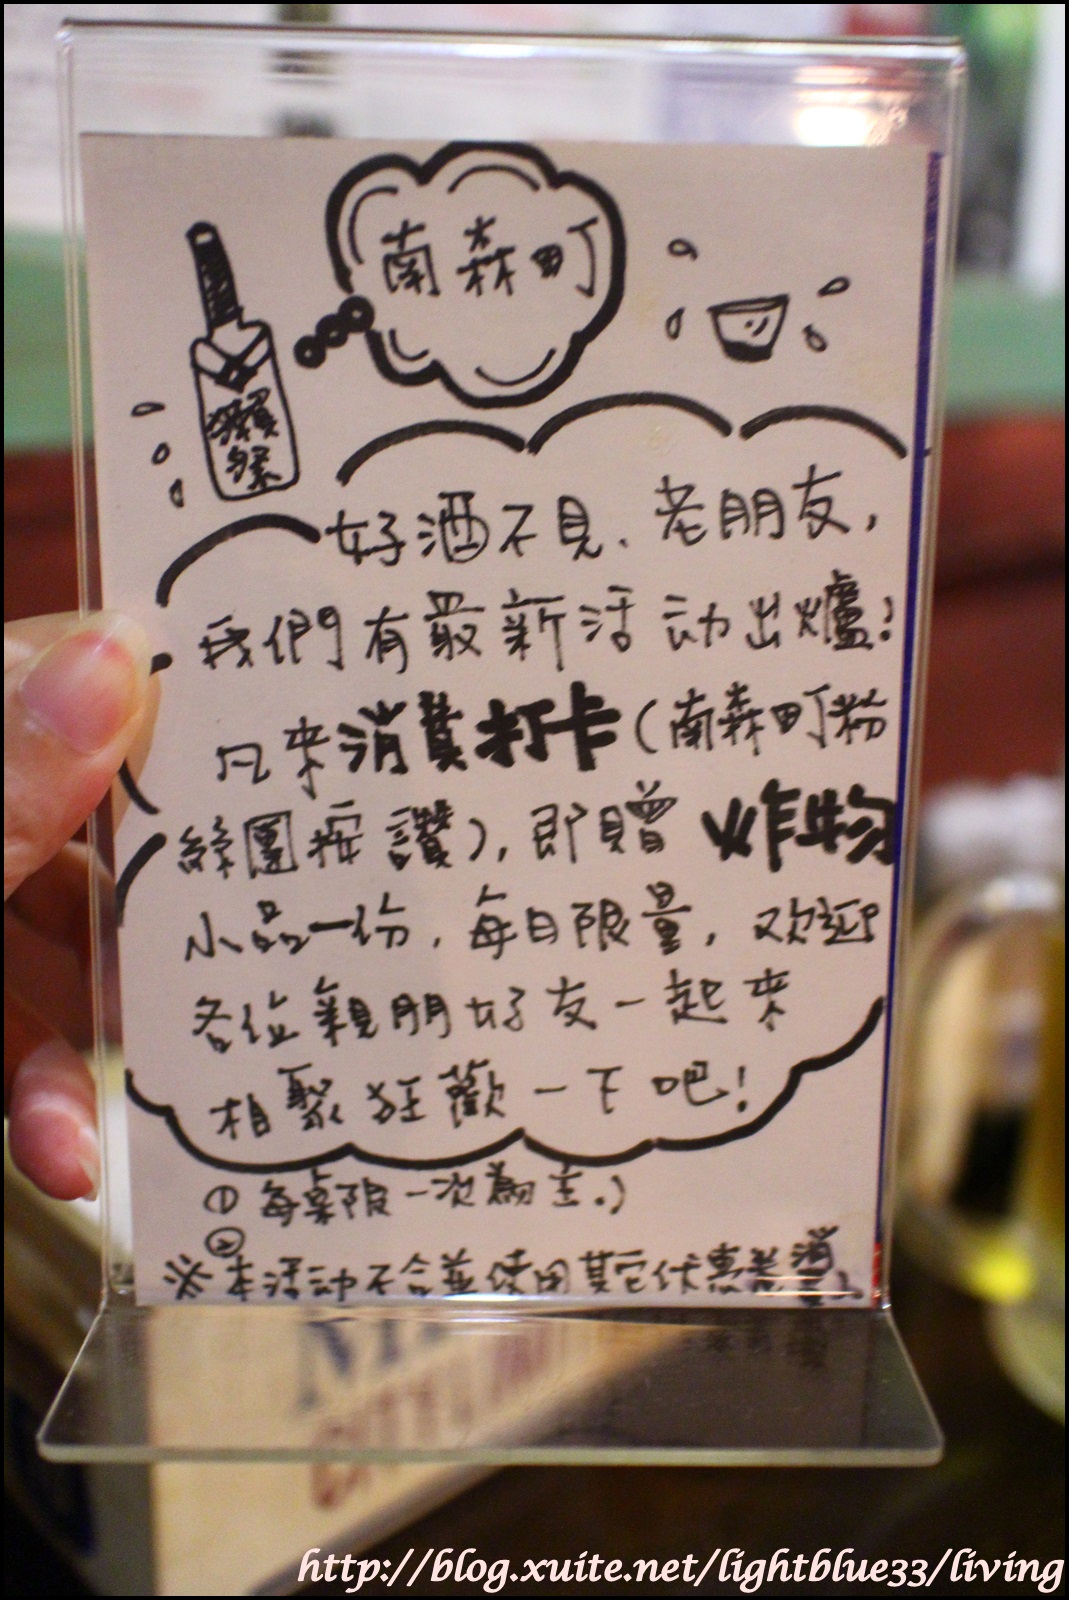 南森町
獺祭
好酒不見、老朋友,
我們有最新活动出爐!
凡來消費打卡(南森町粉
絲團按讚),即贈炸物
小品一份,每日限量,欢迎
各位親朋好友一起來
相聚狂歡一下吧!
① 每桌限一次為主。)
②
※本活动不合並使用其它优惠
http://blog.xuite.net/lightblue33/living